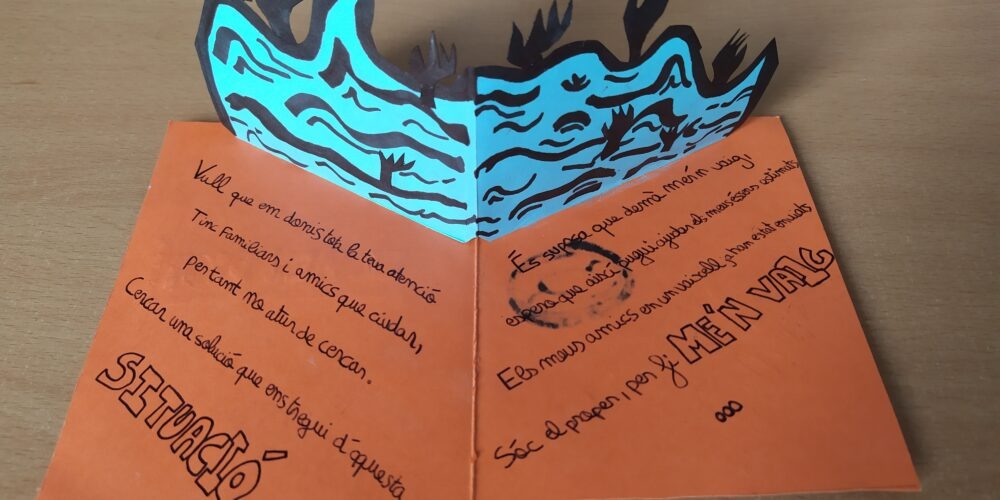 Vull que em donis tota la teva atenció
Tinc Familiars i amics que cuidar,
pertant no atur de cercar.
Cercar una solució que ens tregui d'aquesta
SITUACIÓ
És suposa que demà me'n vaig,
espero que així pugui ajudar els meus éssers estimats
Els meus amics en un vaixell, ja han estat enviats
Sóc el proper, i per fi MÉ'N VAIG
...